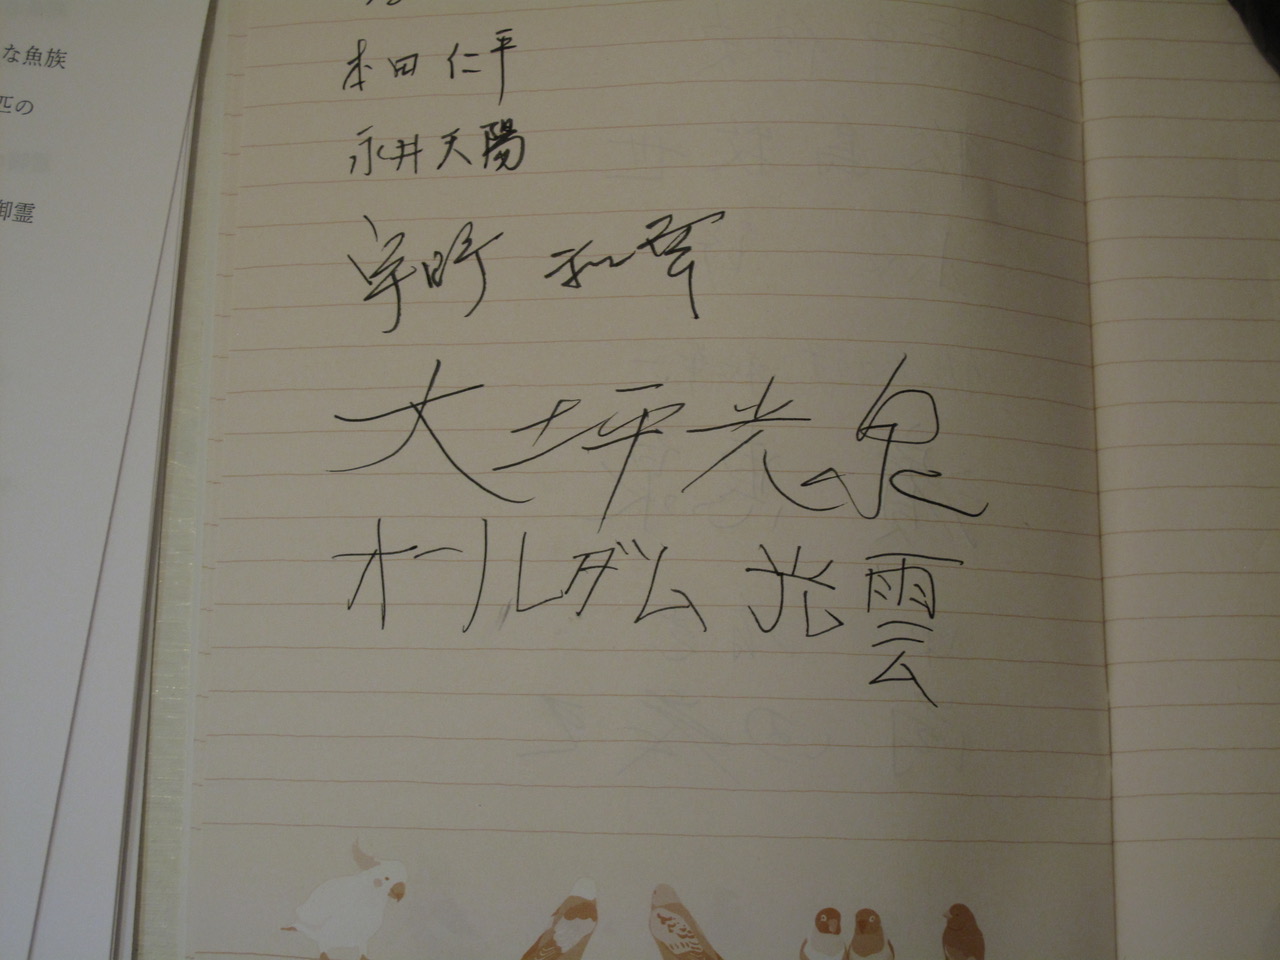 な魚族
匹の
御霊
本田 仁平
永井天陽
宇野 和琴
大坪光泉
オールダム 光雲